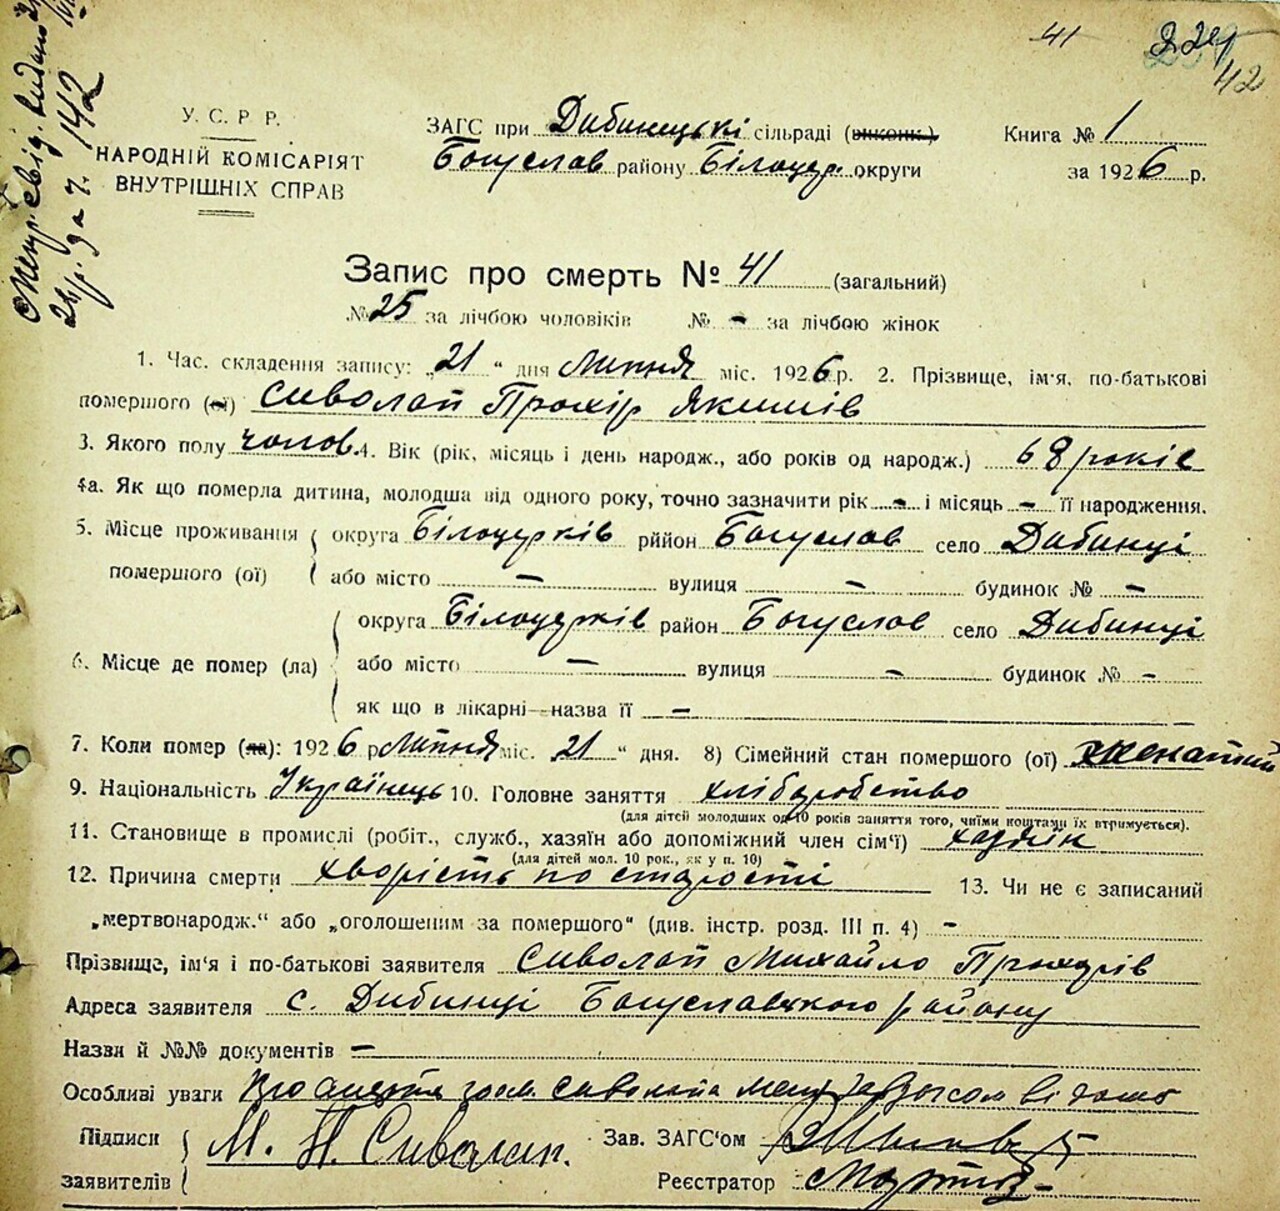 41
42
Смер. свід. видано
за ч. 142
У. С. Р. Р.
НАРОДНІЙ КОМІСАРІЯТ
ВНУТРІШНІХ СПРАВ
ЗАГС при Дибинецькі сільраді (виконк.)
Богуслав району Білоцер. округи
Книга № 1
за 1926 р.
Запис про смерть № 41 (загальний)
№ 25 за лічбою чоловіків № - за лічбою жінок
1. Час. складення запису: „21“ дня Липня міс. 1926 р. 2. Прізвище, ім'я, по-батькові
помершого (ої) Сиволап Прохір Якимів
3. Якого полу чолов. 4. Вік (рік, місяць і день народж., або років од народж.) 68 років
4а. Як що померла дитина, молодша від одного року, точно зазначити рік - і місяць - її народження.
5. Місце проживання округа Білоцерків рйїон Богуслав село Дибинці
помершого (ої) або місто - вулиця - будинок № -
округа Білоцерків район Богуслав село Дибинці
6. Місце де помер (ла) або місто - вулиця - будинок № -
як що в лікарні—назва її -
7. Коли помер (ла): 1926 р Липня міс. 21“ дня. 8) Сімейний стан помершого (ої) женатий
9. Національність Українець 10. Головне заняття хліборобство
(для дітей молодших од 10 років заняття того, чиїми коштами їх втримується).
11. Становище в промислі (робіт., служб., хазяїн або допоміжний член сім'ї) хазяїн
(для дітей мол. 10 рок., як у п. 10)
12. Причина смерти хворість по старості 13. Чи не є записаний
„мертвонародж.“ або „оголошеним за помершого“ (див. інстр. розд. III п. 4) -
Прізвище, ім'я і по-батькові заявителя Сиволап Михайло Прохорів
Адреса заявителя с. Дибинці Богуславського району
Назви й №№ документів -
Особливі уваги Про смерть гром. Сиволапа мені Завзагсом відомо
Підписи М. П. Сиволап. Зав. ЗАГС'ом
заявителів Реєстратор